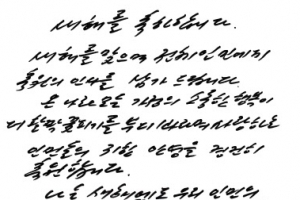 새해를 축하합니다.
새해를 맞으며 전체 인민에게
축원의 인사를 삼가 드립니다.
온 나라 모든 가정의 소중한 행복이
더 활짝 꽃피기를 부디 바라며 사랑하는
인민들의 귀한 안녕을 경건히
축원합니다.
나는 새해에도 우리 인민의